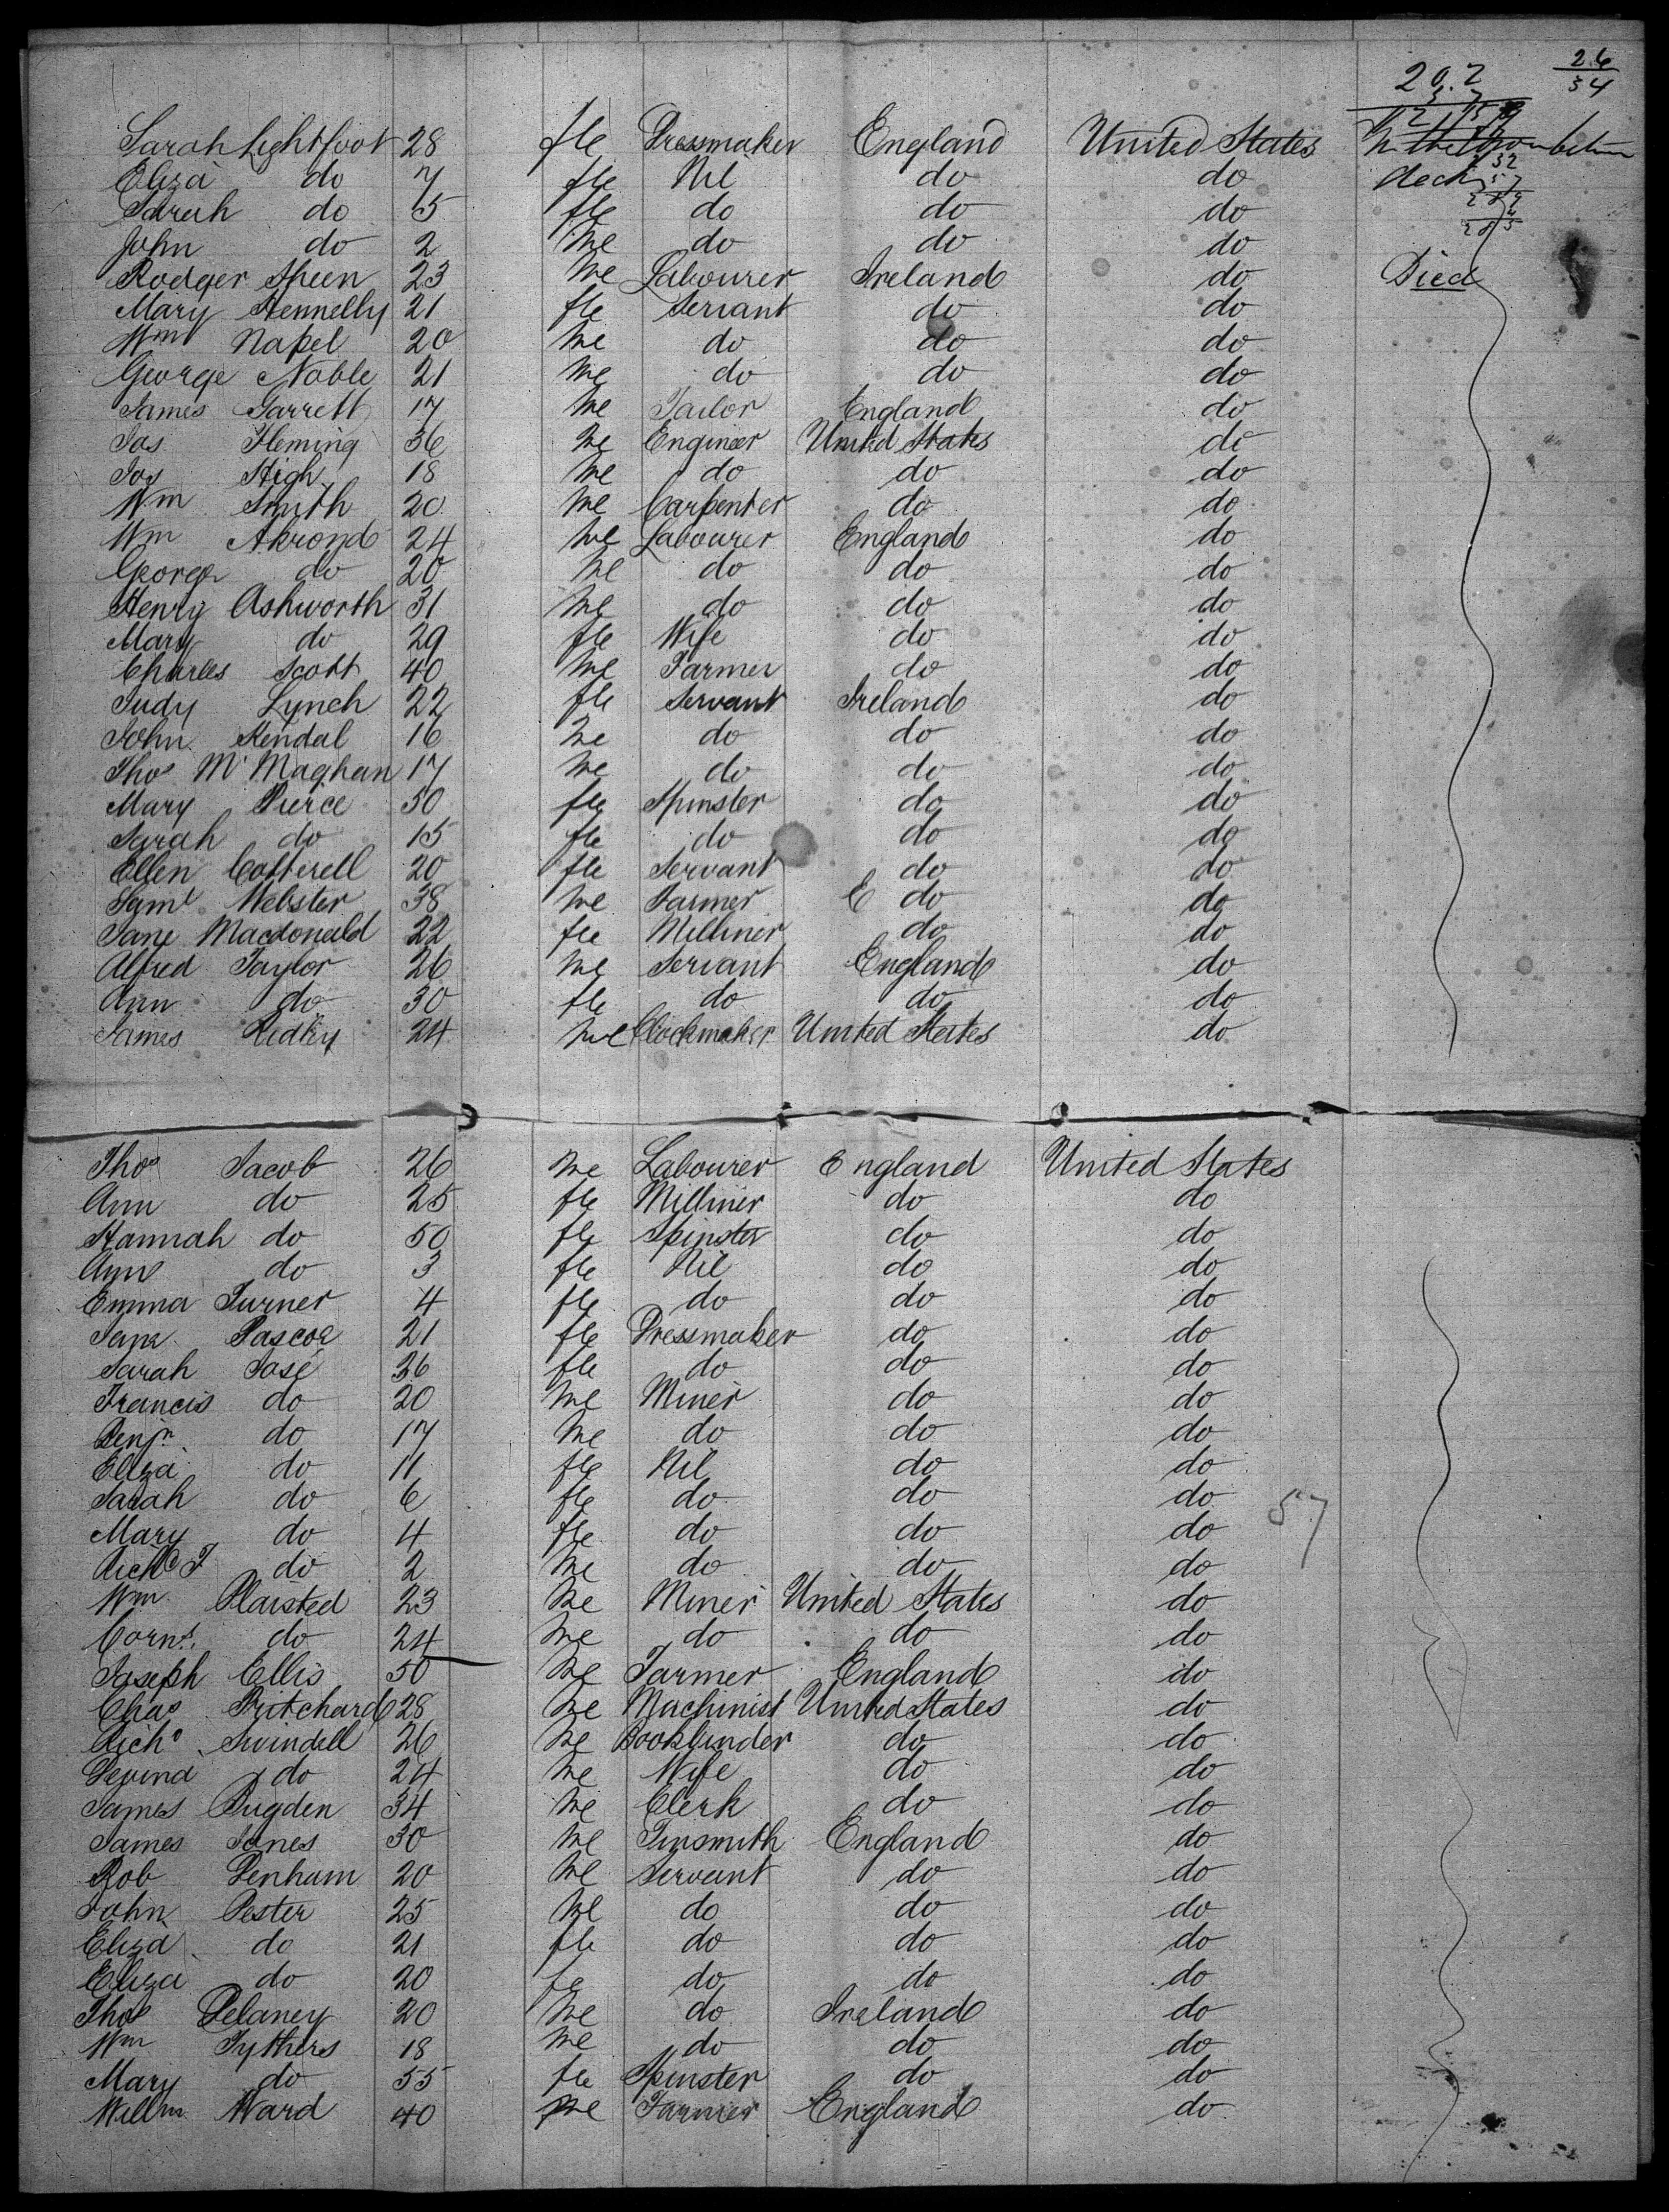 26
20.2 34
Sarah Lightfoot 28 fle Dressmaker England United States In the between
Eliza do 7 fle Nil do do deck
Sarah do 5 fle do do do
John do 2 Me do do do
Rodger Sheen 23 Me Labourer Ireland do Died
Mary Hennelly 21 fle Servant do do
Wm Napel 20 Me do do do
George Noble 21 Me do do do
James Garrett 17 Me Tailor England do
Jas Fleming 36 Me Engineer United States do
Jos High 18 Me do do do
Wm Smith 20 Me Carpenter do do
Wm Akrond 24 Me Labourer England do
George do 20 Me do do do
Henry Ashworth 31 Me do do do
Mary do 29 fle Wife do do
Charles Scott 40 Me Farmer do do
Judy Lynch 22 fle Servant Ireland do
John Kendal 16 Me do do do
Thos Mc Maghan 17 Me do do do
Mary Pierce 50 fle Spinster do do
Sarah do 15 fle do do do
Ellen Cotterell 20 fle Servant do do
Saml Webster 38 Me Farmer E do do
Jane Macdonald 22 fle Milliner do do
Alfred Taylor 26 Me Servant England do
Ann do 30 fle do do do
James Hedley 24 Me Clockmaker United States do
Thos Jacob 26 Me Labourer England United States
Ann do 25 fle Milliner do do
Hannah do 50 fle Spinster do do
Ann do 3 fle Nil do do
Emma Turner 4 fle do do do
Jane Pascoe 21 fle Dressmaker do do
Sarah Jose 36 fle do do do
Francis do 20 Me Miner do do
Benjn do 17 Me do do do
Eliza do 11 fle Nil do do
Sarah do 6 fle do do do 57
Mary do 4 fle do do do
Richd F do 2 Me do do do
Wm Plaisted 23 Me Miner United States do
Corns do 24 Me do do do
Joseph Ellis 50 Me Farmer England do
Chas Pritchard 28 Me Machinist United States do
Richd Swindell 26 Me Bookbinder do do
do 24 Me Wife do do
James Bugden 34 Me Clerk do do
James Jones 30 Me Tinsmith England do
Rob Denham 20 Me Servant do do
John Pester 25 Me do do do
Eliza do 21 fle do do do
Eliza do 20 fe do do do
Thos Delaney 20 Me do Ireland do
Wm Tythers 18 Me do do do
Mary do 55 fle Spinster do do
Willm Ward 40 Me Farmer England do